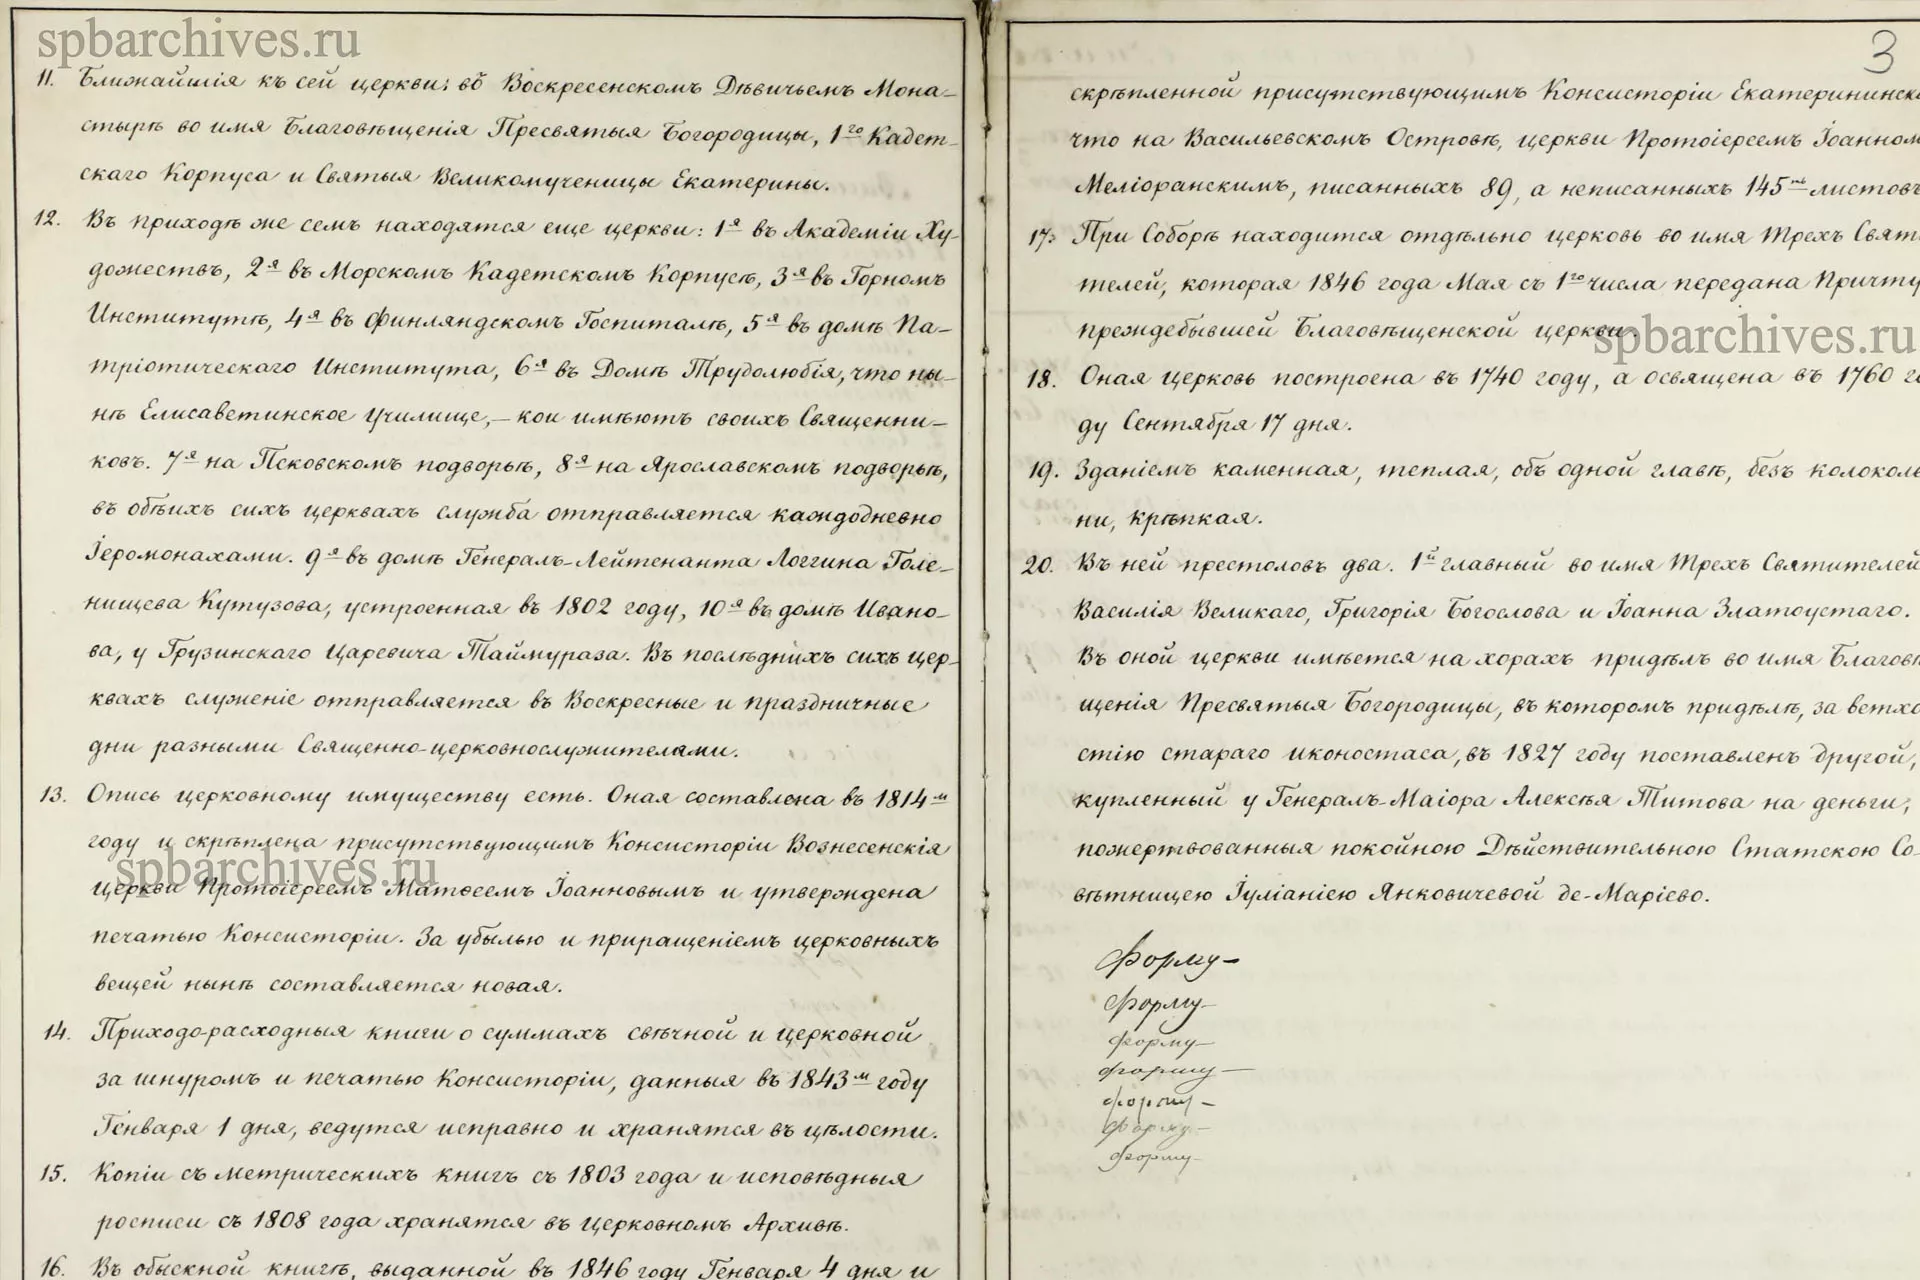 spbarchives.ru
11. Ближайшія къ сей церкви: въ Воскресенскомъ Дѣвичьемъ Мона-
стырѣ во имя Благовѣщенія Пресвятыя Богородицы, 1го Кадет-
скаго Корпуса и Святыя Великомученицы Екатерины.
12. Въ приходѣ же семъ находятся еще церкви: 1я въ Академіи Ху-
дожествъ, 2я въ Морскомъ Кадетскомъ Корпусѣ, 3я въ Горномъ
Институтѣ, 4я въ Финляндскомъ Госпиталѣ, 5я въ домѣ Па-
тріотическаго Института, 6я въ Домѣ Трудолюбія, что ны-
нѣ Елисаветинское Училище, – кои имѣютъ своихъ Священни-
ковъ. 7я на Псковскомъ подворьѣ, 8я на Ярославскомъ подворьѣ,
въ обѣихъ сихъ церквахъ служба отправляется каждодневно
Іеромонахами. 9я въ домѣ Генералъ-Лейтенанта Логгина Голе-
нищева Кутузова, устроенная въ 1802 году, 10я въ домѣ Ивано-
ва, у Грузинскаго Царевича Таймураза. Въ послѣднихъ сихъ цер-
квахъ служеніе отправляется въ Воскресные и праздничные
дни разными Священно-церковнослужителями.
13. Опись церковному имуществу есть. Оная составлена въ 1814м
году и скрѣплена присутствующимъ Консисторіи Вознесенскія
церкви Протоіереемъ Матѳеемъ Іоанновымъ и утверждена
spbarchives.ru
печатью Консисторіи. За убылью и приращеніемъ церковныхъ
вещей нынѣ составляется новая.
14. Приходо-расходныя книги о суммахъ свѣчной и церковной
за шнуромъ и печатью Консисторіи, данныя въ 1843м году
Генваря 1 дня, ведутся исправно и хранятся въ цѣлости.
15. Копіи съ метрическихъ книгъ съ 1803 года и исповѣдныя
росписи съ 1808 года хранятся въ церковномъ Архивѣ.
16. Въ обыскной книгѣ, выданной въ 1846 году Генваря 4 дня и
3
скрѣпленной присутствующимъ Консисторіи Екатерининск
что на Васильевскомъ Островѣ, церкви Протоіереемъ Іоанном
Меліоранскимъ, писанныхъ 89, а неписанныхъ 145ть листовъ
17. При Соборѣ находится отдѣльно церковь во имя Трехъ Святи
телей, которая 1846 года Мая съ 1го числа передана Причту
преждебывшей Благовѣщенской церкви.
spbarchives.ru
18. Оная церковь построена въ 1740 году, а освящена въ 1760 го
ду Сентября 17 дня.
19. Зданіемъ каменная, теплая, объ одной главѣ, безъ колоколь
ни, крѣпкая.
20. Въ ней престоловъ два. 1й главный во имя Трехъ Святителей
Василія Великаго, Григорія Богослова и Іоанна Златоустаго.
Въ оной церкви имѣется на хорахъ придѣлъ во имя Благовѣ
щенія Пресвятыя Богородицы, въ которомъ придѣлѣ, за ветхо
стію стараго иконостаса, въ 1827 году поставленъ другой,
купленный у Генералъ-Маіора Алексѣя Титова на деньги,
пожертвованныя покойною Дѣйствительною Статскою Со-
вѣтницею Іуліаніею Янковичевой де-Маріево.
Форму –
Форму –
Форму –
Форму –
Форму –
Форму –
Форму –